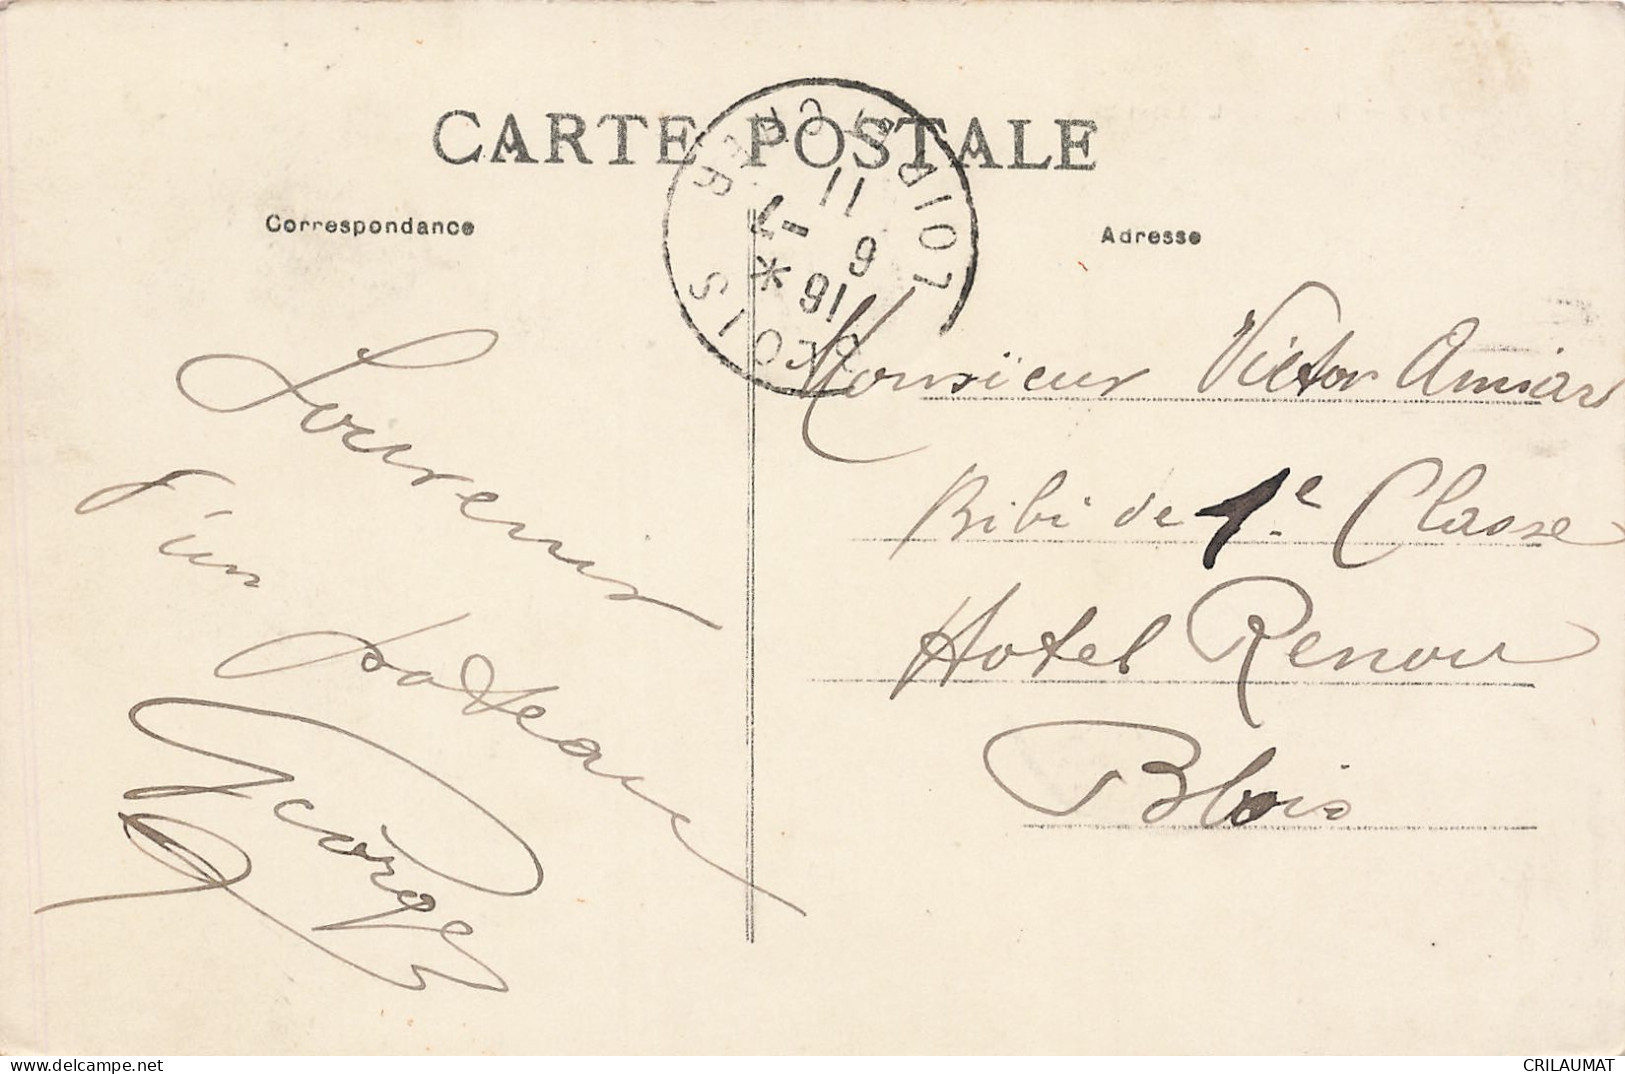 CARTE POSTALE
Correspondance
Adresse
BLOIS
LOIR-ET-CHER
16
6 -7
11
Souvenir
d'un
poteau
Georges
Monsieur Victor Amiard
Bibi de 1e Classe
Hotel Renou
Blois
www.delcampe.net
CRILAUMAT